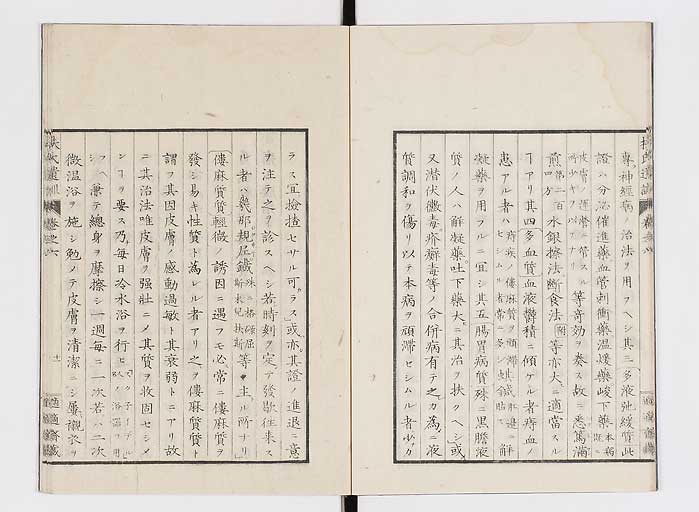 専神經病ノ治法ヲ用フヘシ其三多液弛緩質此
證ハ分泌催進藥血管刺衝藥温煖藥峻下藥
等奇効ヲ奏ス故ニ悉篤滿
水銀擦法斷食法等亦大ニ適當スル
アリ其四多血質血液鬱積ニ傾ケル者痔血ノ
患アル者ハ
凝藥ヲ用フルニ宜シ其五腸胃病質殊ニ黒膽液
質ノ人ハ解凝藥吐下藥大ニ其治ヲ扶クヘシ或
又潜伏黴毒疥癬毒等ノ合併病有テ之カ為ニ液
質調和ヲ傷リ以テ本病ヲ頑滞セシムル者少カ
扶氏遺訓
ラス宜檢搜セサル可ラス或亦其證ノ進退ニ意
ヲ注テ之ヲ診スヘシ若時刻ヲ定テ發歇往来ス
ル者ハ幾那規尼鐵等ヲ主ル所ナリ
僂麻質質輕微ノ誘因ニ遇フモ必常ニ僂麻質ヲ
發シ易キ性質ト為レル者アリ之ヲ僂麻質質ト
謂フ其因皮膚ノ感動過敏ト其衰弱トニアリ故
ニ其治法唯皮膚ヲ強壮ニメ其質ヲ收固セシメ
ンヿヲ要ス乃毎日冷水浴ヲ行ヒ
シヘ兼テ總身ヲ摩擦シ一週毎ニ一次若ハ二次
微温浴ヲ施シ勉メテ皮膚ヲ清潔ニシ屢襯衣ヲ
扶氏遺訓
卷之六
十一
適適齋藏